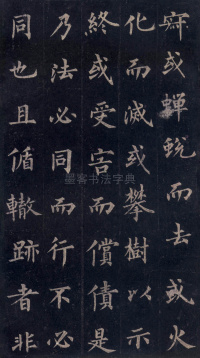 寂或蟬蛻而去或火
化而滅或攀樹以示
終或受害而償債是
乃法必同而行不必
同也且循轍跡者非
墨客书法字典